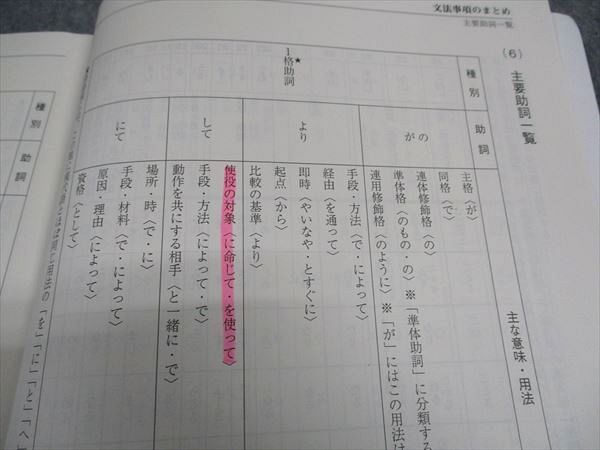 文法事項のまとめ
主要助詞一覧
(6) 主要助詞一覧
種別
助詞
主な意味・用法
★
1格助詞
の
が
主格〈が〉
同格〈で〉
連体修飾格〈の〉
準体格〈のもの・の〉 ※「準体助詞」に分類する
連用修飾格〈のように〉 ※「が」にはこの用法は
より
手段・方法〈で・によって〉
経由〈を通って〉
即時〈やいなや・とすぐに〉
起点〈から〉
比較の基準〈より〉
して
使役の対象〈に命じて・を使って〉
手段・方法〈によって・で〉
動作を共にする相手〈と一緒に・で〉
にて
場所・時〈で・に〉
手段・材料〈で・によって〉
原因・理由〈によって〉
資格〈として〉
ほぼ同じ用法の「を」「に」「と」「へ」
種別
助詞